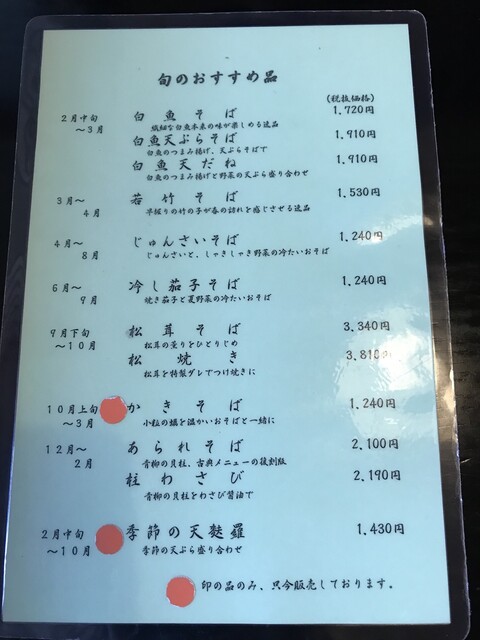 旬のおすすめ品
(税抜価格)
2月中旬 白魚そば 1.720円
～3月 繊細な白魚本来の味が楽しめる逸品
白魚天ぷらそば 1.910円
白魚のつまみ揚げ、天ぷらそばで
白魚天だね 1.910円
白魚のつまみ揚げと野菜の天ぷら盛り合わせ
3月～ 若竹そば 1.530円
4月 早掘りの竹の子が春の訪れを感じさせる逸品
4月～ じゅんさいそば 1.240円
8月 じゅんさいと、しゃきしゃき野菜の冷たいおそば
6月～ 冷し茄子そば 1.240円
9月 焼き茄子と夏野菜の冷たいおそば
9月下旬 松茸そば 3.340円
～10月 松茸の薫りをひとりじめ
松焼き 3.810円
松茸を特製ダレでつけ焼きに
10月上旬 かきそば 1.240円
～3月 小粒の蠣を温かいおそばと一緒に
12月～ あられそば 2.100円
2月 青柳の貝柱、古典メニューの復刻版
柱わさび 2.190円
青柳の貝柱をわさび醤油で
2月中旬 季節の天麩羅 1.430円
～10月 季節の天ぷら盛り合わせ
印の品のみ、只今販売しております。